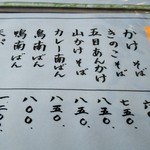 かけそば 六〇〇
きのこそば 七五〇
五目あんかけ 八五〇
山かけそば 八五〇
カレー南ばん 八五〇
鳥南ばん 八〇〇
鴨南ばん 八〇〇
一二〇〇